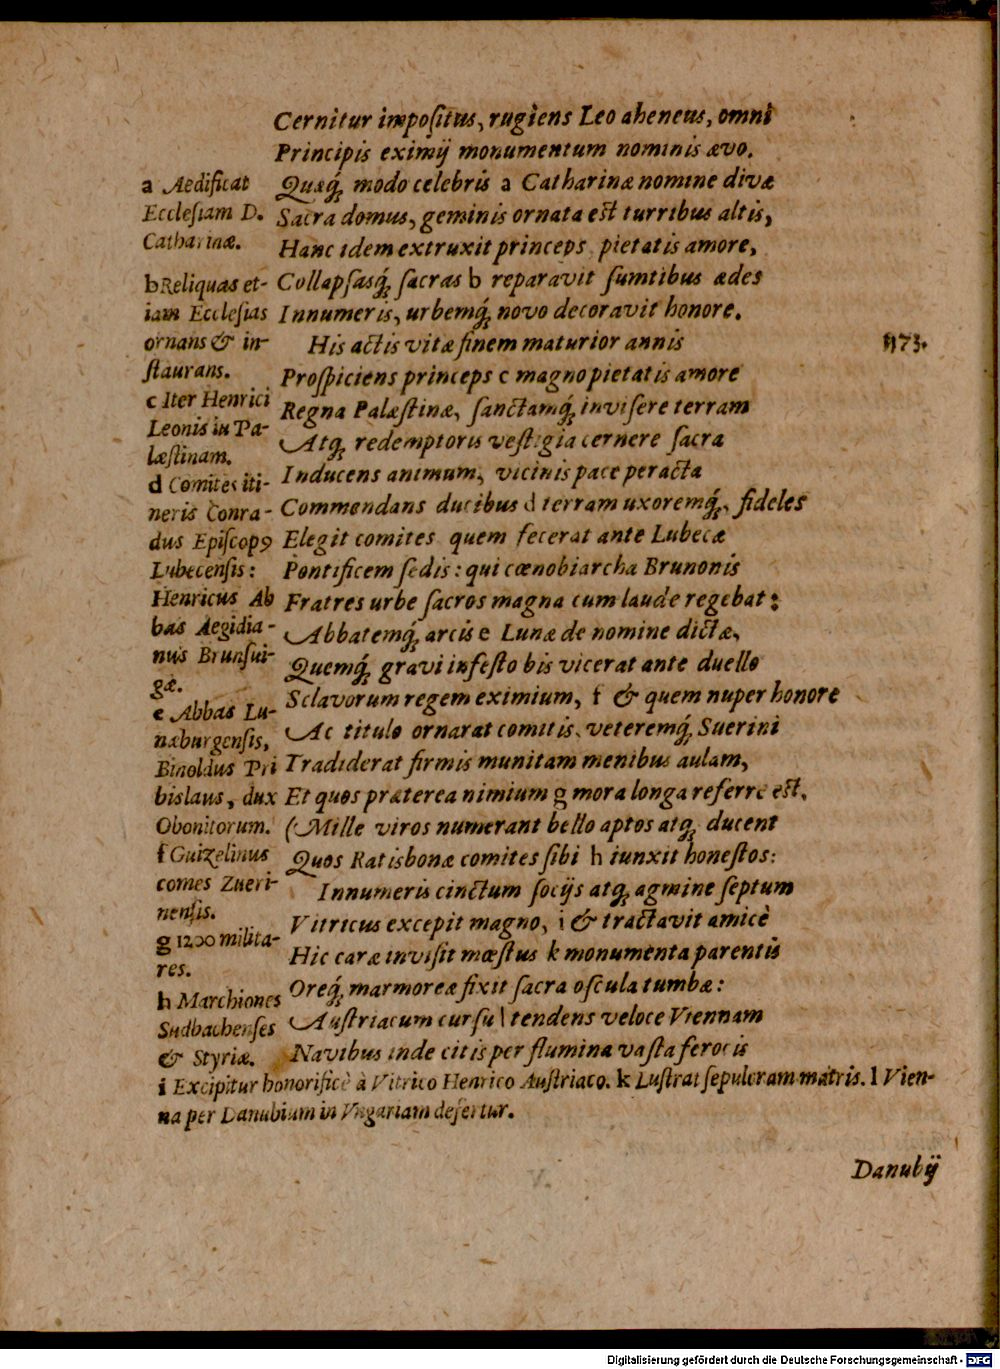 Cernitur impoſitus, rugiens Leo aheneus, omni
Principis eximij monumentum nominis ævo.
Quæq́; modo celebris a Catharinæ nomine divæ
Sacra domus, geminis ornata eſt turribus altis,
Hanc idem extruxit princeps pietatis amore,
Collapſasq́; ſacras b reparavit ſumtibus ædes
Innumeris, urbemq́; novo decoravit honore.
His actis vitæ finem maturior annis
Proſpiciens princeps c magno pietatis amore
Regna Palæſtinæ, ſanctamq́; inviſere terram
Atq; redemptoris veſtigia cernere ſacra
Inducens animum, vicinis pace peracta
Commendans ducibus d terram uxoremq́;, fideles
Elegit comites quem fecerat ante Lubecæ
Pontificem ſedis: qui cœnobiarcha Brunonis
Fratres urbe ſacros magna cum laude regebat:
Abbatemq́; arcis e Lunæ de nomine dictæ,
Quemq́; gravi infeſto bis vicerat ante duello
Sclavorum regem eximium, f & quem nuper honore
Ac titulo ornarat comitis, veteremq́; Suerini
Tradiderat firmis munitam menibus aulam,
Et quos præterea nimium g mora longa referre eſt,
(Mille viros numerant bello aptos atq; ducent
Quos Ratisbonæ comites ſibi h iunxit honeſtos:
Innumeris cinctum ſocijs atq; agmine ſeptum
Vitricus excepit magno, i & tractavit amicè
Hic caræ inviſit mœſtus k monumenta parentis
Oreq́; marmoreæ fixit ſacra oſcula tumbæ:
Auſtriacum curſu l tendens veloce Viennam
Navibus inde citis per flumina vaſta ferocis
a Aedificat
Eccleſiam D.
Catharinæ.
b Reliquas et-
iam Eccleſias
ornans & in-
ſtaurans.
c Iter Henrici
Leonis in Pa-
læſtinam.
d Comites iti-
neris Conra-
dus Epiſcopꝰ
Lubecenſis:
Henricus Ab
bas Aegidia-
nus Brunſui-
gæ.
e Abbas Lu-
næburgenſis,
Binoldus Pri
bislaus, dux
Obonitorum.
f Guizelinus
comes Zueri-
nenſis.
g 1200 milita-
res.
h Marchiones
Sudbachenſes
& Styriæ.
i Excipitur honorificè à Vitrico Henrico Auſtriaco. k Luſtrat ſepulcram matris. l Vien-
na per Danubium in Vngariam defertur.
1173.
Danubij
Digitalisierung gefördert durch die Deutsche Forschungsgemeinschaft - DFG